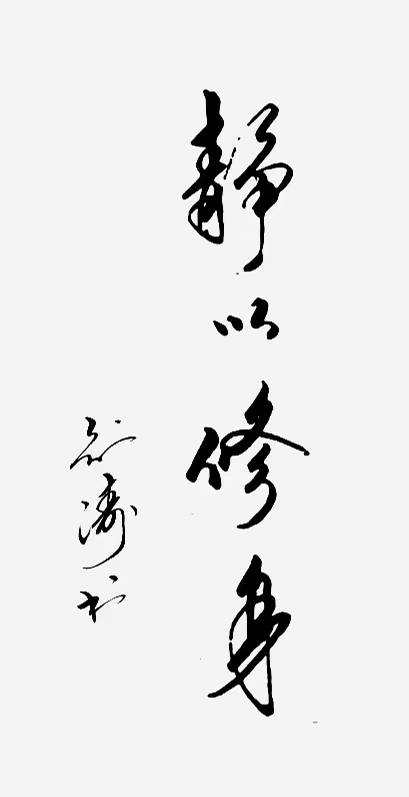 静以修身
涛书